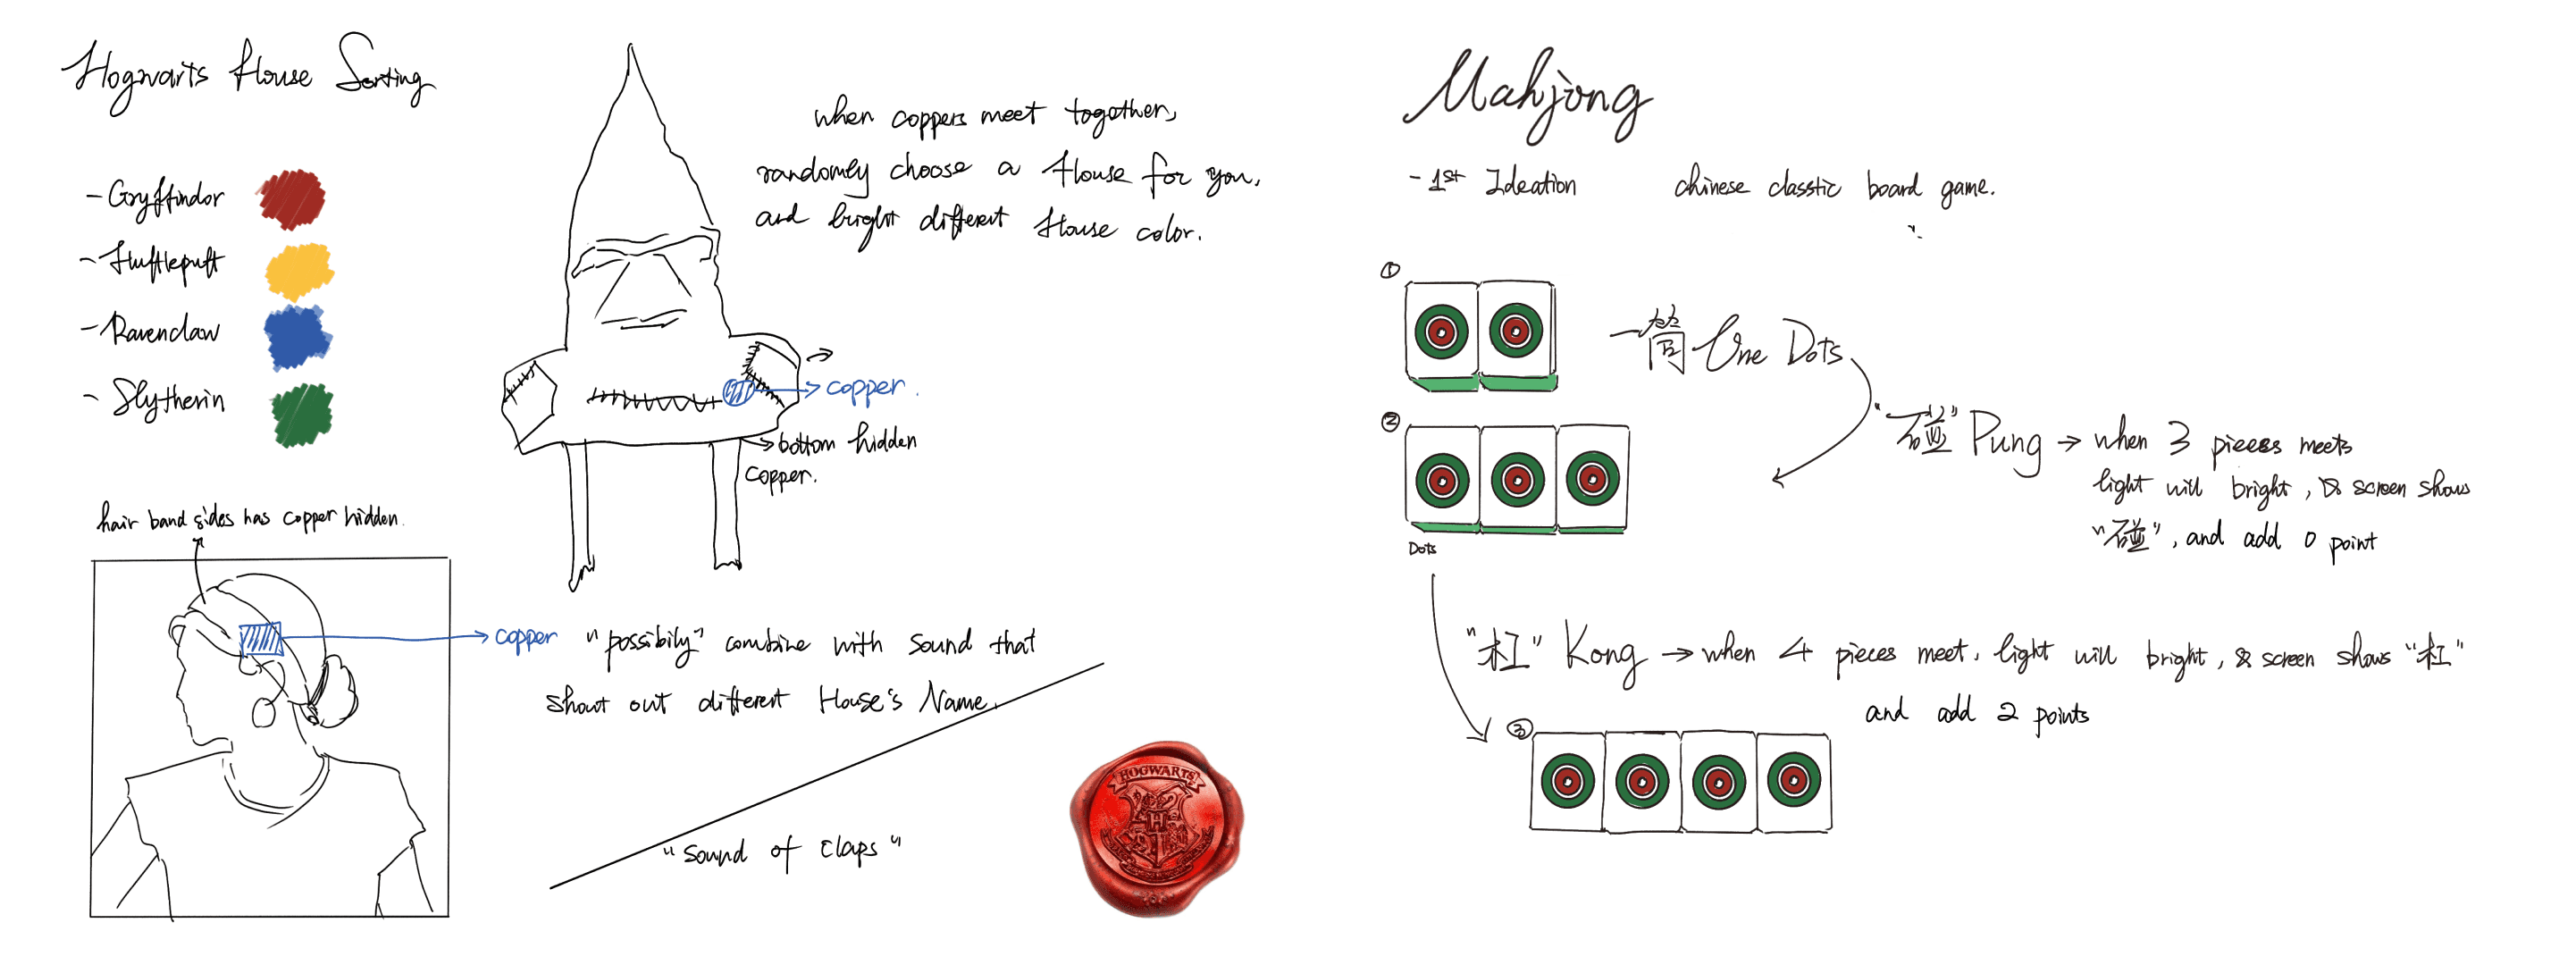 Hogwarts House Sorting
- Gryffindor
- Hufflepuff
- Ravenclaw
- Slytherin
when coppers meet together,
randomely choose a House for you,
and bright different House color.
→ copper.
→ bottom hidden
copper.
hair band sides has copper hidden.
→ copper "possibily" combine with sound that
shout out different House's Name.
"Sound of Claps"
HOGWARTS
H
Mahjong
- 1st Ideation chinese classtic board game.
①
一筒 One Dots
②
Dots
"碰" Pung → when 3 pieces meets
light will bright, & screen shows
"碰", and add 0 point
"杠" Kong → when 4 pieces meet. light will bright, & screen shows "杠"
and add 2 points
③